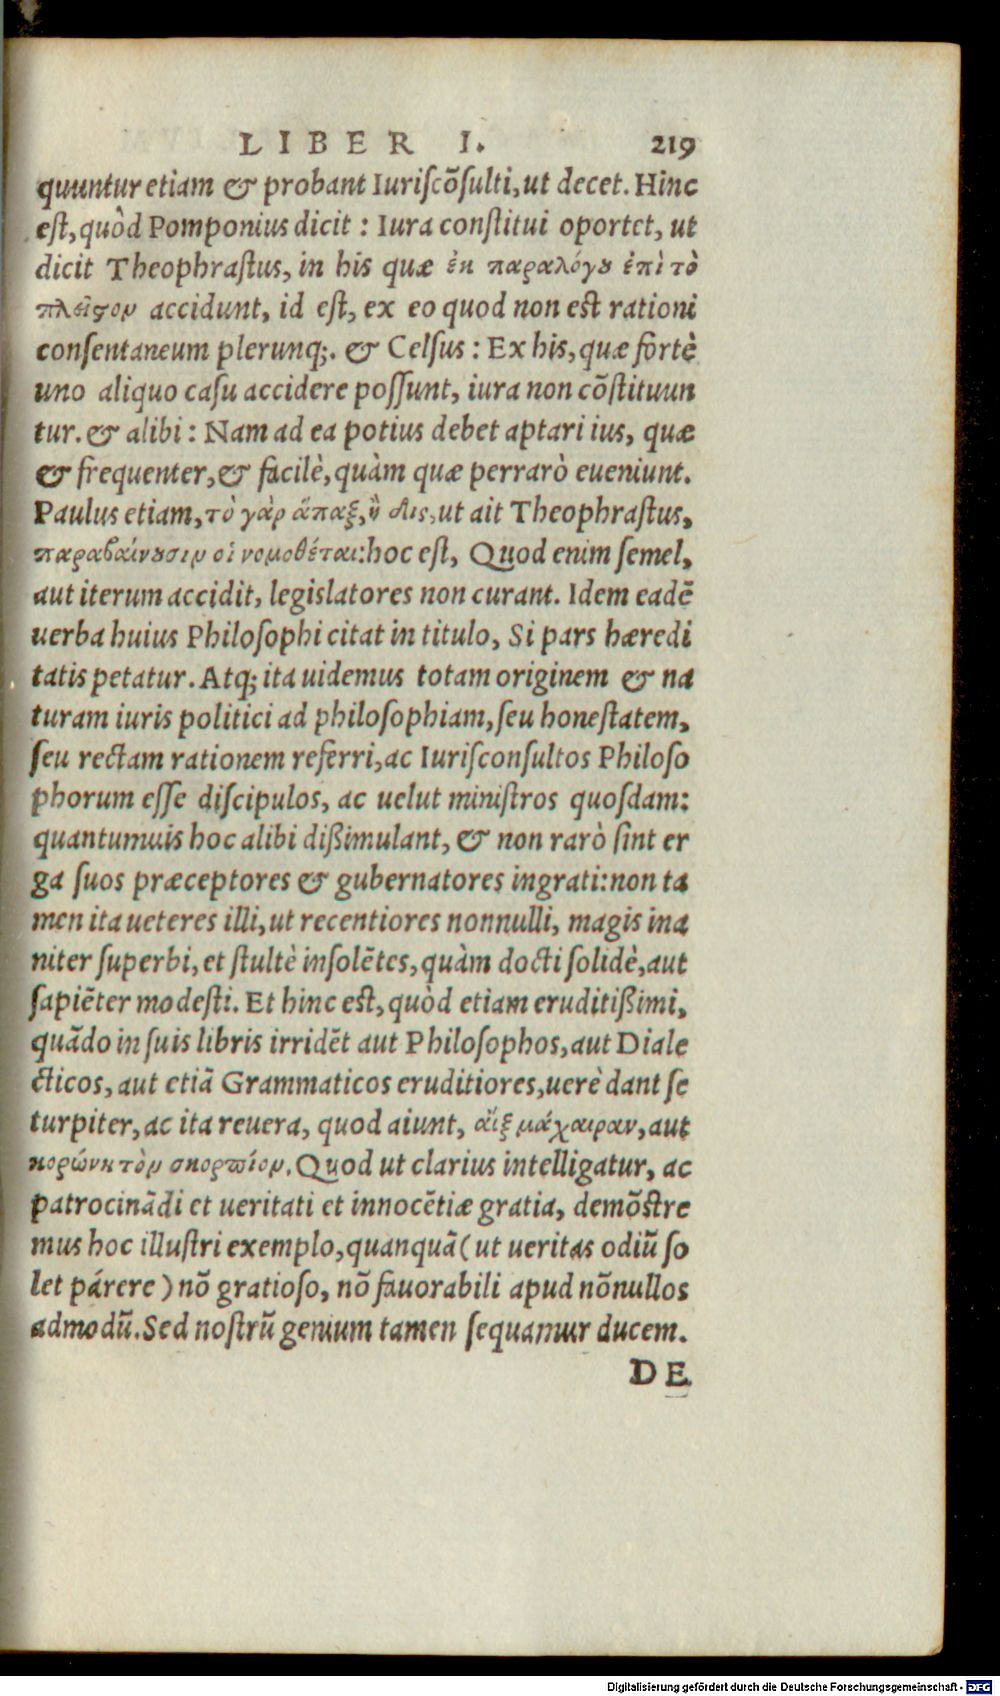 LIBER I. 219
quuntur etiam & probant Iuriſcõſulti, ut decet. Hinc
eſt, quòd Pomponius dicit : Iura conſtitui oportet, ut
dicit Theophraſtus, in his quæ ἐκ παραλόγȣ ἐπὶ τὸ
πλεῖϛον accidunt, id eſt, ex eo quod non eſt rationi
conſentaneum plerunq;. & Celſus : Ex his, quæ fortè
uno aliquo caſu accidere poſſunt, iura non cõſtituun
tur. & alibi : Nam ad ea potius debet aptari ius, quæ
& frequenter, & facilè, quàm quæ perrarò eueniunt.
Paulus etiam, τὸ γὰρ ἅπαξ, ἢ δὶς, ut ait Theophraſtus,
παραβαίνȣσιν οἱ νομοθέται: hoc eſt, Quod enim ſemel,
aut iterum accidit, legislatores non curant. Idem eadẽ
uerba huius Philoſophi citat in titulo, Si pars hæredi
tatis petatur. Atq; ita uidemus totam originem & na
turam iuris politici ad philoſophiam, ſeu honeſtatem,
ſeu rectam rationem referri, ac Iuriſconſultos Philoſo
phorum eſſe diſcipulos, ac uelut miniſtros quoſdam:
quantumuis hoc alibi dißimulant, & non rarò ſint er
ga ſuos præceptores & gubernatores ingrati: non ta
men ita ueteres illi, ut recentiores nonnulli, magis ina
niter ſuperbi, et ſtultè inſolẽtes, quàm docti ſolidè, aut
ſapiẽter modeſti. Et hinc eſt, quòd etiam eruditißimi,
quãdo in ſuis libris irridẽt aut Philoſophos, aut Diale
cticos, aut etiã Grammaticos eruditiores, uerè dant ſe
turpiter, ac ita reuera, quod aiunt, αἴξ μάχαιραν, aut
κορώνη τὸν σκορπίον. Quod ut clarius intelligatur, ac
patrocinãdi et ueritati et innocẽtiæ gratia, demõſtre
mus hoc illuſtri exemplo, quanquã ( ut ueritas odiũ ſo
let párere ) nõ gratioſo, nõ fauorabili apud nõnullos
admodũ. Sed noſtrũ genium tamen ſequamur ducem.
DE
Digitalisierung gefördert durch die Deutsche Forschungsgemeinschaft - DFG